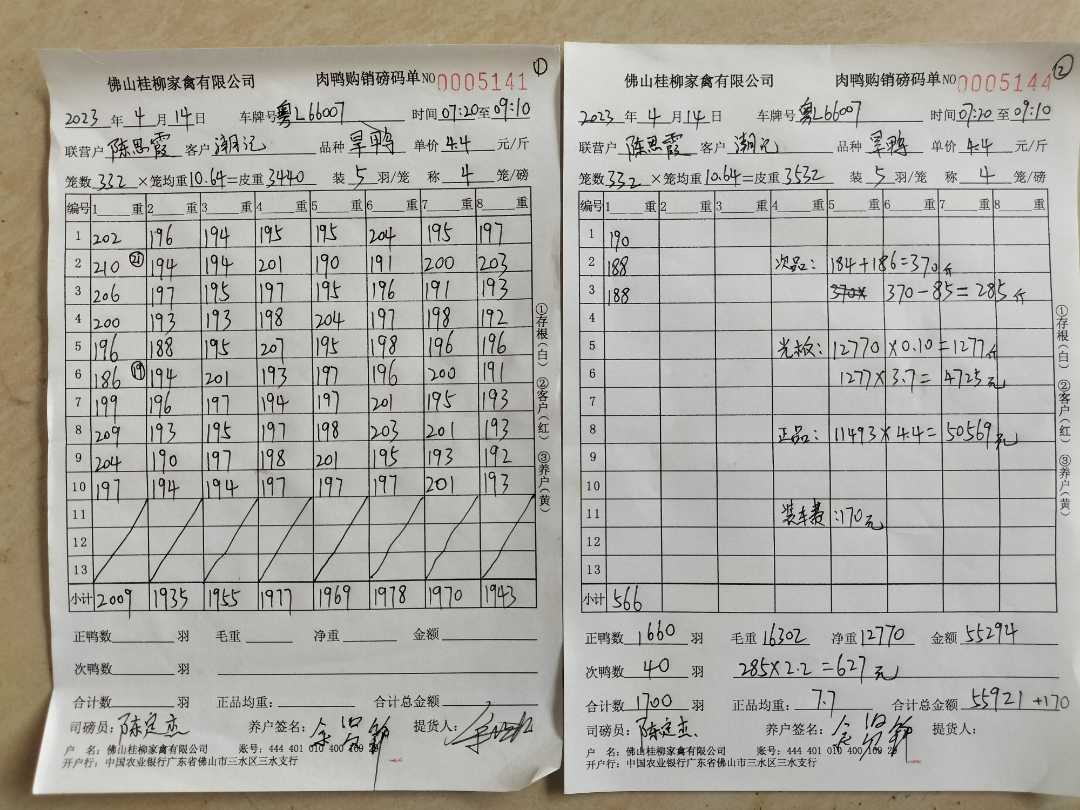 佛山桂柳家禽有限公司 肉鸭购销磅码单 NO 0005141 ①
2023 年 4 月 14 日 车牌号 粤L66007 时间 07:20 至 09:10
联营户 陈思霞 客户 潮记 品种 旱鸭 单价 4.4 元/斤
笼数 332 ×笼均重 10.64 =皮重 3440 装 5 羽/笼 称 4 笼/磅
编号 1 重 2 重 3 重 4 重 5 重 6 重 7 重 8 重
1 202 196 194 195 195 204 195 197
2 210 ㉑ 194 194 201 190 191 200 203
3 206 197 195 197 195 196 191 193
4 200 193 193 198 204 197 198 192
5 196 188 195 207 195 198 196 196
6 186 ⑲ 194 201 193 197 196 200 191
7 199 196 197 194 197 201 195 193
8 209 193 195 197 198 203 201 193
9 204 190 197 198 201 195 193 192
10 197 194 194 197 197 197 201 193
11
12
13
小计 2009 1935 1955 1977 1969 1978 1970 1943
①存根(白) ②客户(红) ③养户(黄)
正鸭数 羽 毛重 净重 金额
次鸭数 羽
合计数 羽 正品均重: 合计总金额
司磅员: 陈定杰 养户签名: 提货人:
户 名: 佛山桂柳家禽有限公司 账号: 444 401 010 400 100 29
开户行: 中国农业银行广东省佛山市三水区三水支行
佛山桂柳家禽有限公司 肉鸭购销磅码单 NO 0005144 ②
2023 年 4 月 14 日 车牌号 粤L66007 时间 07:20 至 09:10
联营户 陈思霞 客户 潮记 品种 旱鸭 单价 4.4 元/斤
笼数 332 ×笼均重 10.64 =皮重 3532 装 5 羽/笼 称 4 笼/磅
编号 1 重 2 重 3 重 4 重 5 重 6 重 7 重 8 重
1 190
2 188 次品: 184+186=370斤
3 188 370× 370-85=285斤
4
5 光板: 12770×0.10=1277斤
6 1277×3.7=4725元
7
8 正品: 11493×4.4=50569元
9
10
11 装车费:170元
12
13
小计 566
①存根(白) ②客户(红) ③养户(黄)
正鸭数 1660 羽 毛重 16302 净重 12770 金额 55294
次鸭数 40 羽 285×2.2=627元
合计数 1700 羽 正品均重: 7.7 合计总金额 55921+170
司磅员: 陈定杰 养户签名: 提货人:
户 名: 佛山桂柳家禽有限公司 账号: 444 401 010 400 100 29
开户行: 中国农业银行广东省佛山市三水区三水支行